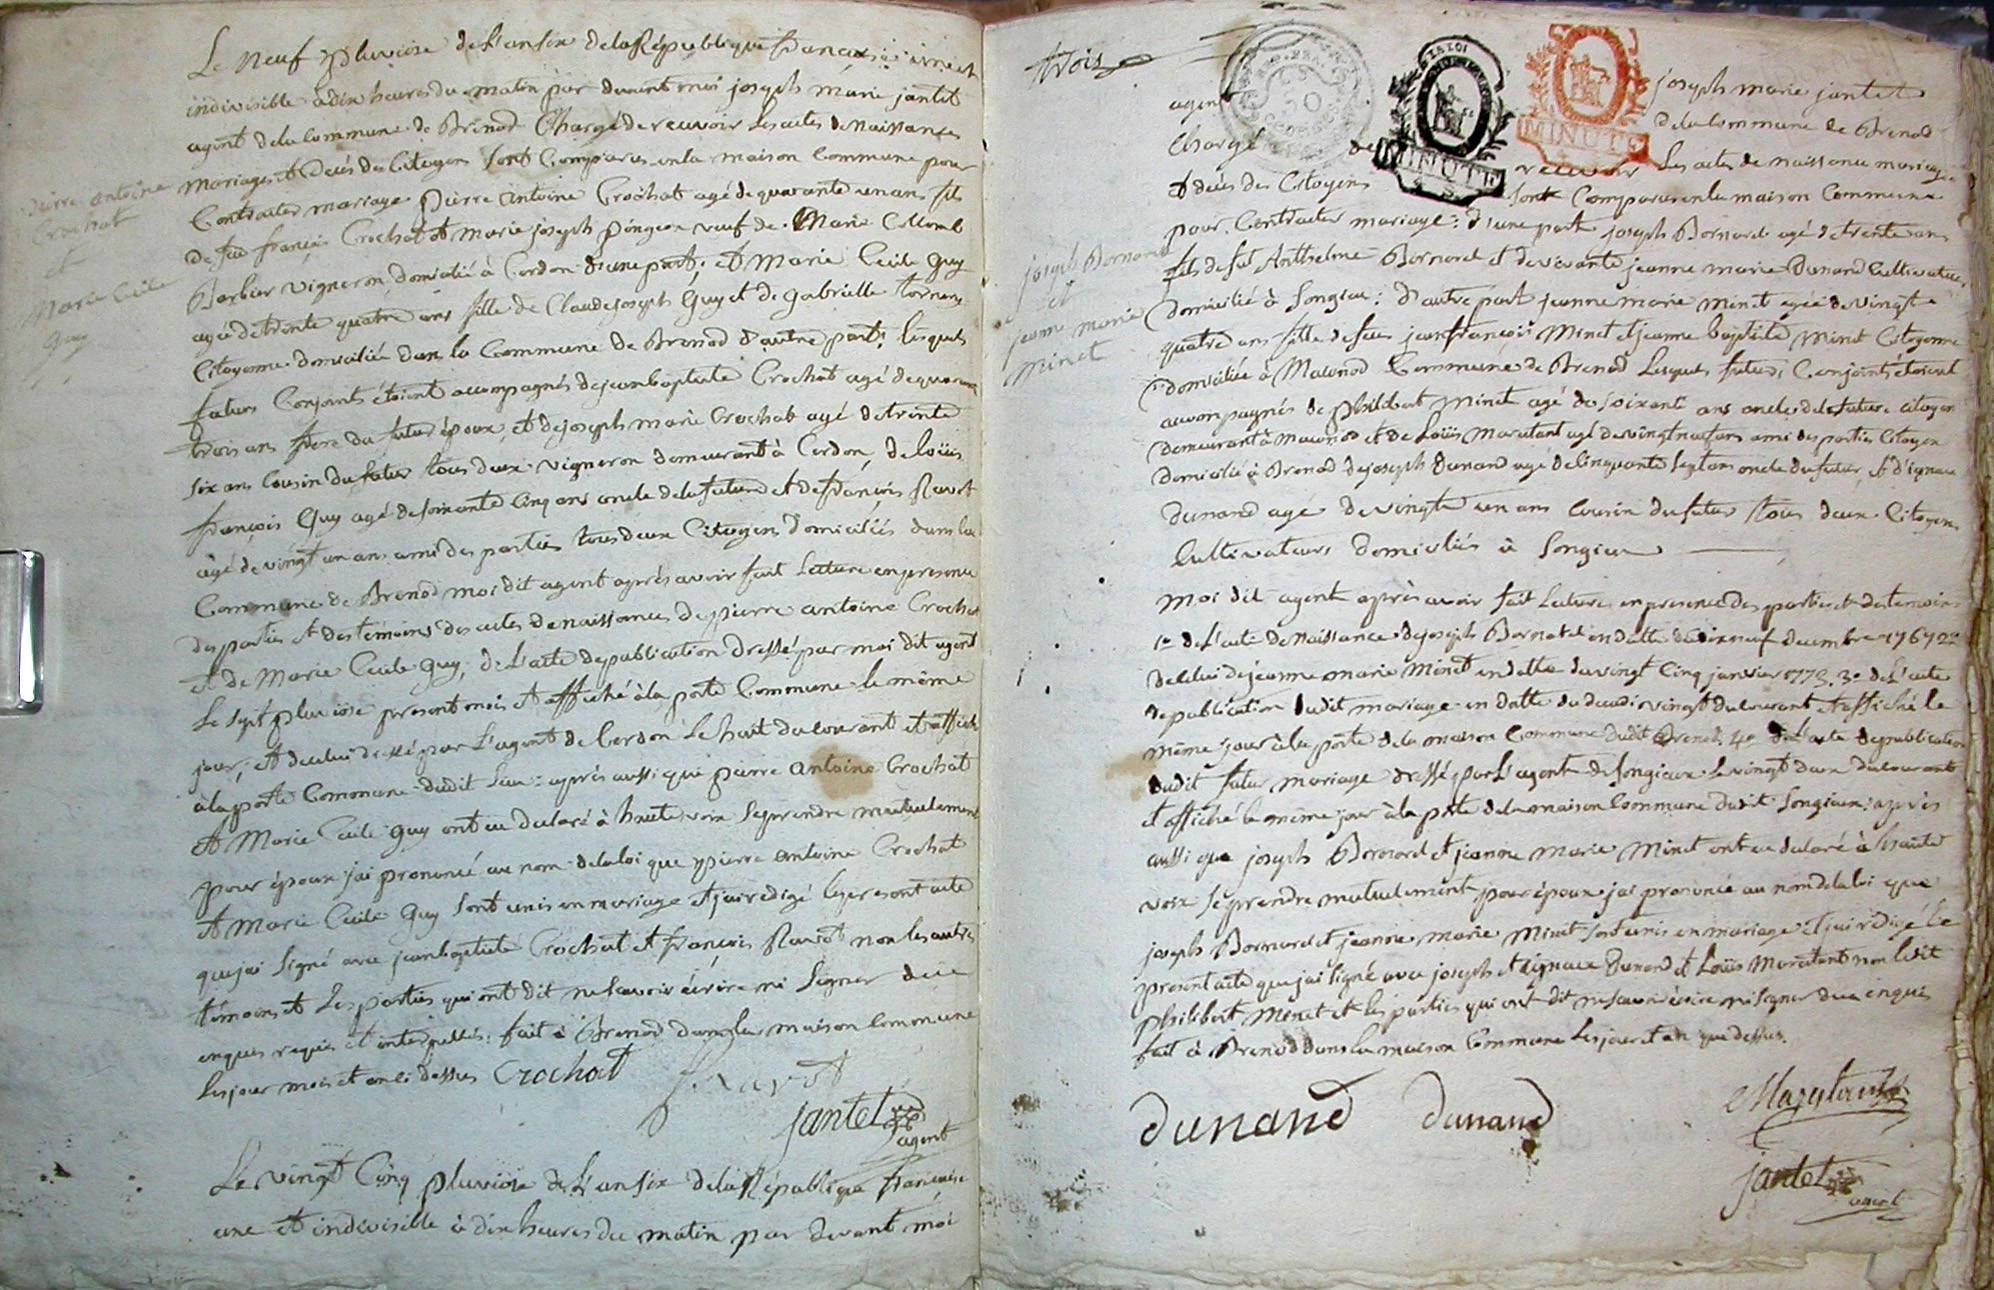 Le neuf pluviose de L'an six de la République francaise une et
indivisible à dix heures du matin par devant moi joseph marie jantet
agent de la Commune de Brenod Chargé de recevoir Les actes de Naissances
Mariages et Decès des Citoyens sont Comparus en la maison Commune pour
Contracter mariage pierre antoine Crochat agé de quarante un ans fils
de feu françois Crochat et marie joseph pingeon veuf de Marie Collomb
Barbier vigneron domicilié à Cerdon d'une part; et Marie Cecile Guy
agée de trente quatre ans fille de Claude joseph Guy et de Gabrielle
Citoyenne domiciliée dans la Commune de Brenod d'autre part; lesquels
futurs Conjoints étoient accompagnés de jean baptiste Crochat agé de quarante
trois ans frere du futur époux, et de joseph marie Crochat agé de trente
six ans Cousin du futur tous deux vigneron demeurant à Cerdon, de Loüis
françois Guy agé de soixante Cinq ans oncle de la future et de françois Ravot
agé de vingt un ans ami des parties tous deux Citoyens domiciliés dans la
Commune de Brenod moi dit agent après avoir fait Lecture en presence
des parties et des témoins des actes de naissances de pierre antoine Crochat
et de Marie Cecile Guy, de L'acte de publication dressé par moi dit agent
Le sept pluviose present mois et affiché à la porte Commune le même
jour; et de celui dressé par L'agent de Cerdon Le huit du courant et affiché
à la porte Commune dudit Lieu: après aussi que pierre antoine Crochat
et Marie Cecile Guy ont eu declaré à haute voix se prendre mutuelement
pour époux j'ai prononcé au nom de la loi que pierre antoine Crochat
et Marie Cecile Guy sont unis en mariage et j'ai redigé le present acte
que j'ai signé avec jean baptiste Crochat et françois Ravot non les autres
témoins et Les parties qui ont dit ne savoir écrire ni signer de ce
enquis requis et interpellés: fait à Brenod dans la maison Commune
Les jour mois et an ci dessus Crochat
f. ravot
jantet
agent
Le vingt Cinq pluviose de L'an six de la République francaise
une et indivisible à dix heures du matin par devant moi
pierre antoine
Crochat
et
Marie Cecile
Guy
trois
MINUTE
MINUTE
joseph marie jantet
agent de la Commune de Brenod
Chargé de recevoir Les actes de naissance mariage
et decès des Citoyens sont Comparus en la maison Commune
pour Contracter mariage: d'une part joseph Bornard agé de trente ans
fils de feu Anthelme Bornard et de vivante jeanne marie Dunand Cultivateur
domicilié à Songieu: d'autre part jeanne marie Minet agée de vingt
quatre ans fille de feu jean françois Minet et jeanne baptiste Minet Citoyenne
domiciliée à Maconod Commune de Brenod Lesquels futurs Conjoints étoient
accompagnés de philibert Minet agé de soixante ans oncle de la future citoyen
demeurant à maconod et de Loüis Maratant agé de vingt neuf ans ami des parties Citoyen
domicilié à Brenod de joseph Dunand agé de Cinquante sept ans oncle du futur, et d'ignace
Dunand agé de vingt un ans Cousin du futur tous deux Citoyens
Cultivateurs domiciliés à Songieu
moi dit agent après avoir fait Lecture en presence des parties et des temoins
1° de L'acte de Naissance de joseph Bornard en datte du dix neuf decembre 1767 2°
de celui de jeanne marie Minet en datte du vingt Cinq janvier 1773. 3° de L'acte
de publication dudit mariage en datte du decadi vingt du courant et affiché le
même jour à la porte de la maison Commune dudit Brenod 4° de L'acte de publication
dudit futur mariage dressé par L'agent de Songieux Le vingt deux du courant
et affiché le même jour à la porte de la maison Commune dudit Songieux: après
aussi que joseph Bornard et jeanne marie Minet ont eu declaré à haute
voix se prendre mutuelement pour époux j'ai prononcé au nom de la loi que
joseph Bornard et jeanne marie Minet sont unis en mariage: et j'ai redigé le
present acte que j'ai signé avec joseph et ignace Dunand et Loüis Maratant non ledit
philibert Minet et les parties qui ont dit ne savoir écrire ni signer de ce enquis
fait à Brenod dans la maison Commune Les jour et an que dessus.
Dunand Dunand Maratant
jantet
agent
joseph Bornard
et
jeanne marie
Minet